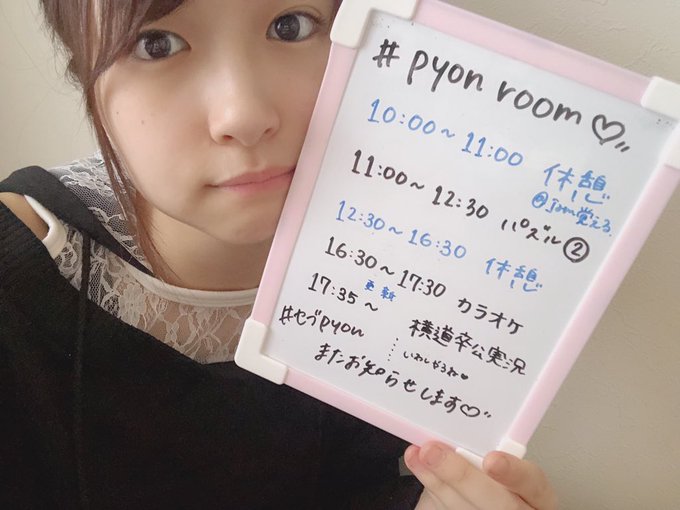 # pyon room♡
10:00~11:00 休憩
11:00~12:30 パズル②
12:30~16:30 休憩
16:30~17:30 カラオケ
更新
17:35~ 横道卒公実況
#セブpyon
またお知らせします♡